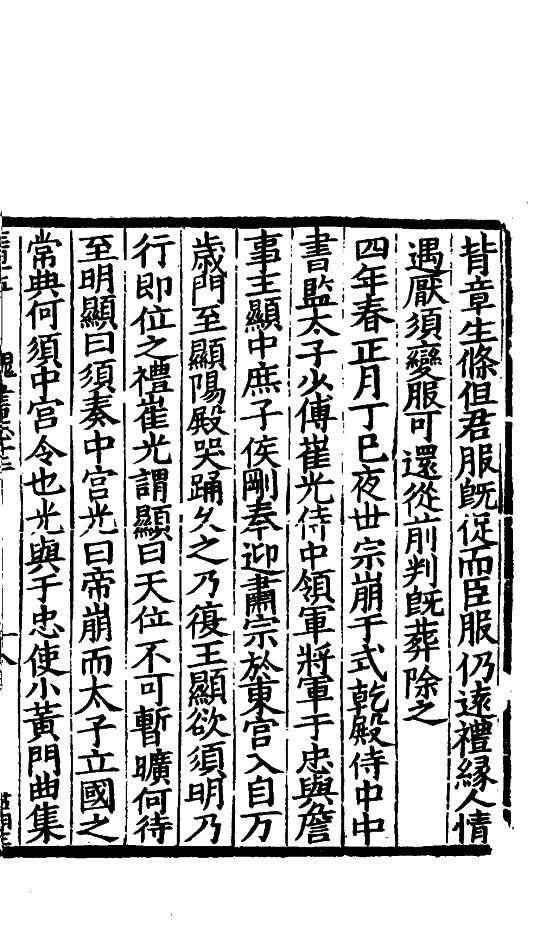 背章生條但君服旣從而臣服仍遠禮緣人情
遇厭須變服可還從前判旣葬除之
四年春正月丁巳夜世宗崩于式乾殿侍中中
書監太子少傅崔光侍中領軍將軍于忠與詹
事王顯中庶子侯剛奉迎肅宗於東宮入自万
歲門至顯陽殿哭踊久之乃復王顯欲須明乃
行即位之禮崔光謂顯曰天位不可暫曠何待
至明顯曰須奏中宮光曰帝崩而太子立國之
常典何須中宮令也光與于忠使小黃門曲集